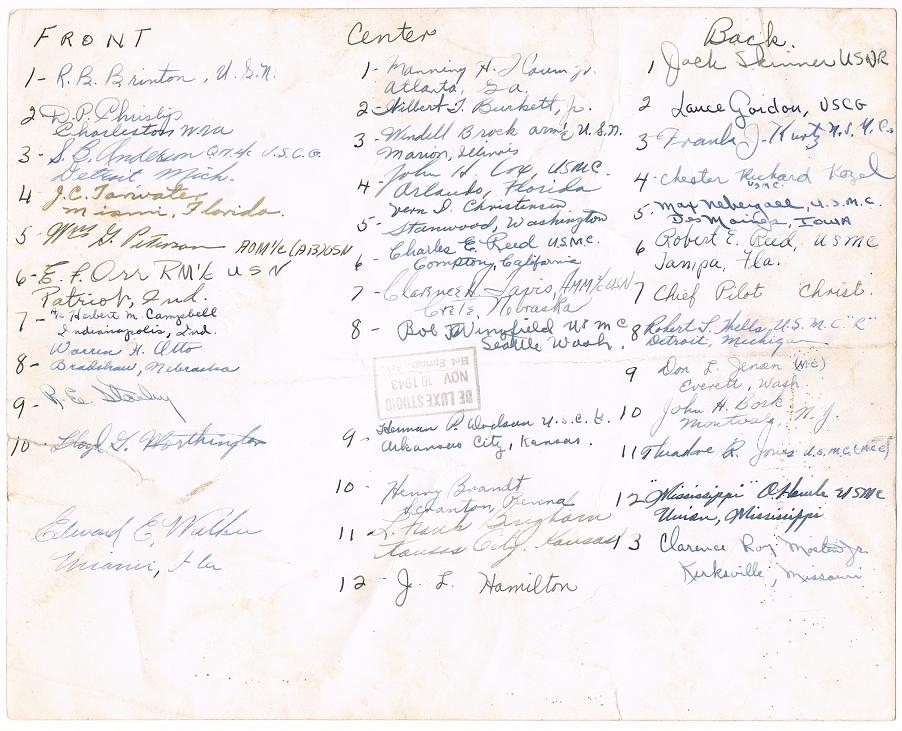 FRONT
1- R. B. Brinton, U.S.N.
2 D.P.
Charleston W.Va
3- S. B. Anderson Q.M. U.S.C.G.
Detroit Mich.
4 J.C. Tarwater
Miami, Florida.
5- Wm G. Peterson AOM1/c (AB) USN
6- E. F. Orr RM1/c USN
Patriot, Ind.
7- Herbert M. Campbell
Indianapolis, Ind.
8- Warren H. Otto
Bradshaw, Nebraska
9- R.E. Stanley
10 Lloyd G. Worthington
Edward E. Walker
Miami, Fla
Center
1- Manning H. Jr.
Atlanta, Ga.
2- Hilbert T. Burkett, Jr.
3- Windell Brock U.S.N.
Marion, Illinois
4- John H. Cox, USMC.
Orlando, Florida
5- Vern I. Christensen
Stanwood, Washington
6- Charles E. Reed U.S.M.C.
Compton, California
7- Clarence H. Davis, AMM1/c USN
Crete, Nebraska
8- Bob Wingfield USMC
Seattle Wash.
DE LUXE STUDIO
NOV 10 1943
Hot Springs, Ark
9- Herman P. U.S.C.G.
Arkansas City, Kansas.
10- Henry Brandt
Scranton, Penna
11 L. Frank Brigham
Kansas City, Kansas
12- J. L. Hamilton
Back.
1 Jack Skinner USNR
2 Lance Gordon, USCG
3 Frank J. Kurtz U.S.M.C.
4- Chester Richard Kozel
USMC.
5- Max Nebergall, U.S.M.C.
Des Moines, Iowa
6 Robert E. Reed, USMC
Tampa, Fla.
7 Chief Pilot Christ.
8 Robert L. Wells, U.S.M.C. "R"
Detroit, Michigan
9 Don L. Jensen
Everett, Wash.
10 John H. Bork
Montvale, N.J.
11 Theodore R. Jones U.S.M.C.
12 "Mississippi" USMC
Union, Mississippi
13 Clarence Roy Jr.
Kirksville, Missouri